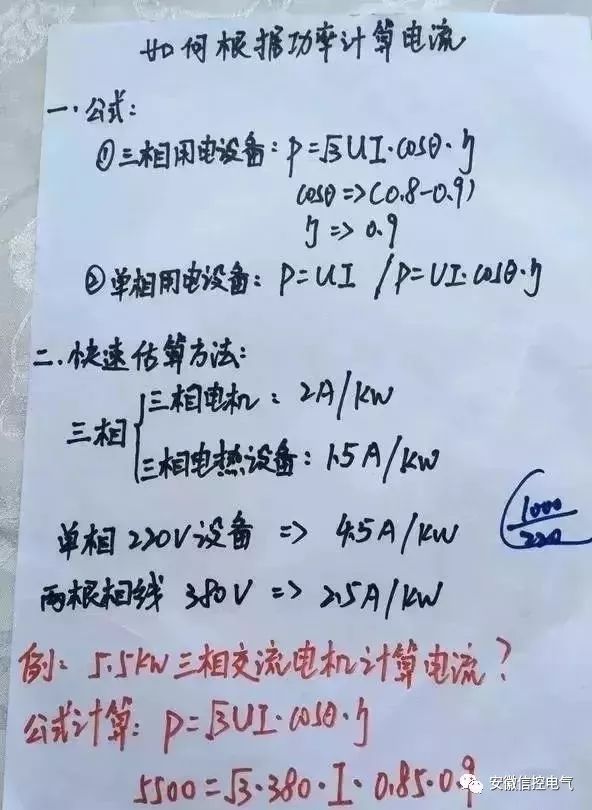 如何根据功率计算电流
一.公式:
①三相用电设备: P=√3UI·cosθ·η
cosθ=>(0.8-0.9)
η=>0.9
②单相用电设备: P=UI /P=UI·cosθ·η
二.快速估算方法:
三相
三相电机: 2A/KW
三相电热设备: 1.5A/KW
单相 220V设备 => 4.5A/KW
1000
220
两根相线 380V => 2.5A/KW
例: 5.5KW三相交流电机计算电流?
公式计算: P=√3UI·cosθ·η
5500=√3·380·I·0.85·0.9
安徽信控电气